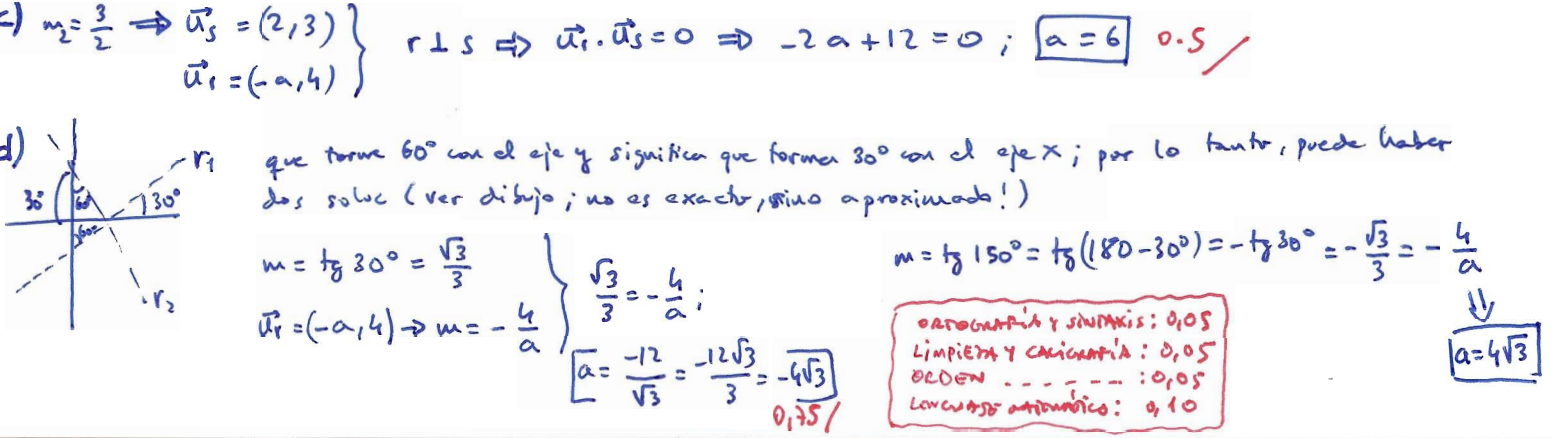 c) m₂ = 3/2 ⇒ u⃗s = (2,3)
u⃗r = (-a,4) } r ⊥ s ⇒ u⃗r · u⃗s = 0 ⇒ -2a + 12 = 0 ; a = 6 0.5/
d) que forme 60° con el eje y significa que forma 30° con el eje x ; por lo tanto, puede haber
dos soluc (ver dibujo ; no es exacto, sino aproximado!)
r₁
30° 60° 30°
60°
r₂
m = tg 30° = √3/3
u⃗r = (-a,4) → m = - 4/a } √3/3 = - 4/a ;
a = -12/√3 = -12√3/3 = -4√3
0,75/
m = tg 150° = tg(180-30°) = -tg 30° = - √3/3 = - 4/a
⇓
a = 4√3
ORTOGRAFÍA Y SINTAXIS : 0,05
LIMPIEZA Y CALIGRAFÍA : 0,05
ORDEN - - - - - - : 0,05
LENGUAJE MATEMÁTICO : 0,10